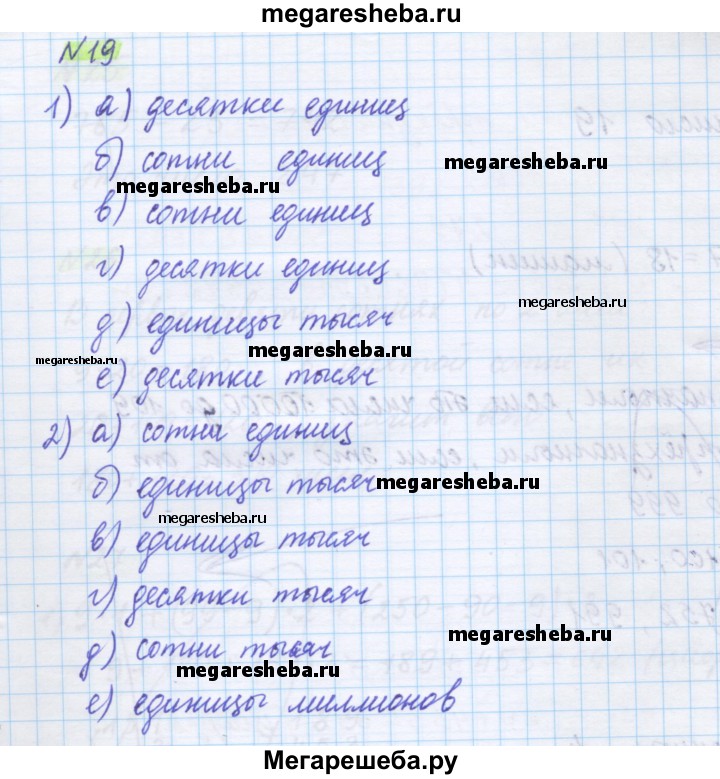 megaresheba.ru
№19
1) а) десятки единиц
б) сотни единиц
megaresheba.ru
megaresheba.ru
в) сотни единиц
г) десятки единиц
megaresheba.ru
д) единицы тысяч
megaresheba.ru
megaresheba.ru
е) десятки тысяч
2) а) сотни единиц
б) единицы тысяч
megaresheba.ru
megaresheba.ru
в) единицы тысяч
г) десятки тысяч
megaresheba.ru
д) сотни тысяч
megaresheba.ru
е) единицы миллионов
Мегарешеба.ру